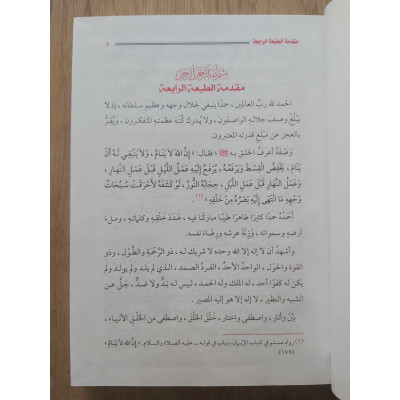 مقدمة الطبعة الرابعة
بسم الله الرحمن الرحيم
مقدمة الطبعة الرابعة
الحمد لله ربِّ العالمين، حمدًا ينبغي لجلال وجهه وعظيم سلطانه، إذ لا
يَبْلُغُ وصفَ جلاله الواصفون، ولا يُدرك كُنْهَ عظمته المتفكرون، ويُقِرُّ
بالعجز عن مبلغ قدرته المعتبرون.
وَصَفَهُ أعرفُ الخلق به ﷺ فقال: «إِنَّ اللهَ لاَ يَنَامُ، وَلاَ يَنْبَغِي لَهُ أَنْ
يَنَامَ، يَخْفِضُ الْقِسْطَ وَيَرْفَعُهُ، يُرْفَعُ إِلَيْهِ عَمَلُ اللَّيْلِ قَبْلَ عَمَلِ النَّهَارِ،
وَعَمَلُ النَّهَارِ قَبْلَ عَمَلِ اللَّيْلِ، حِجَابُهُ النُّورُ، لَوْ كَشَفَهُ لأَحْرَقَتْ سُبُحَاتُ
وَجْهِهِ مَا انْتَهَى إِلَيْهِ بَصَرُهُ مِنْ خَلْقِهِ»(١).
أحمَدُهُ حمدًا كثيرًا طاهرًا طيبًا مباركًا فيه، عَدَدَ خَلْقِهِ وكلماته، وملءَ
أرضِهِ وسمواته، وزِنَةَ عرشه ورضاءَ نفسه.
وأشهدُ أن لا إله إلا الله وحده لا شريك له، ذو الرَّحْمَةِ والطَّوْل، وذو
القوة والحَوْل، الواحدُ الأحدُ، الفردُ الصمد، الذي لم يلد ولم يولد ولم
يكن له كفوًا أحد، له الملك وله الحمد، ليس له نِدٌّ ولا ضدٌّ، جَلَّ عن
الشبيه والنظير، لا إله إلا هو إليه المصير.
بيَّنَ وأنار، واصطفى واختار، خَلَقَ الخَلْقَ، واصطفى من الخَلْقِ الأنبياء،
(١) رواه مسلم في كتاب الإيمان، باب في قوله - عليه الصلاة والسلام: «إِنَّ اللهَ لاَ يَنَامُ»
(١٧٩)